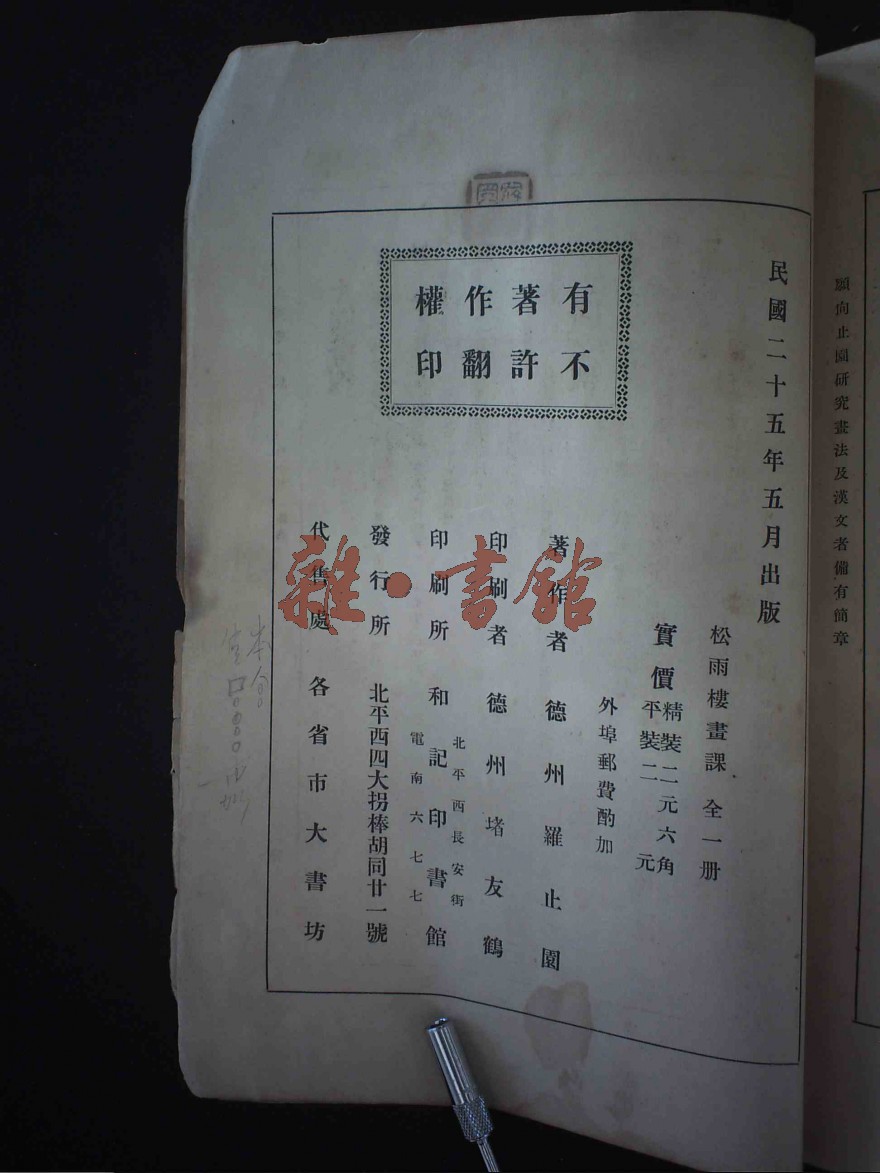 願向止園研究畫法及漢文者備有簡章
民國二十五年五月出版
松雨樓畫課 全一册
實價
精裝二元六角
平裝二元
外埠郵費酌加
有著作權
不許翻印
著作者 德州羅止園
印刷者 德州堵友鶴
印刷所 和記印書館
北平西長安街
電南六七七
發行所 北平西四大拐棒胡同廿一號
代售處 各省市大書坊
雜·書館